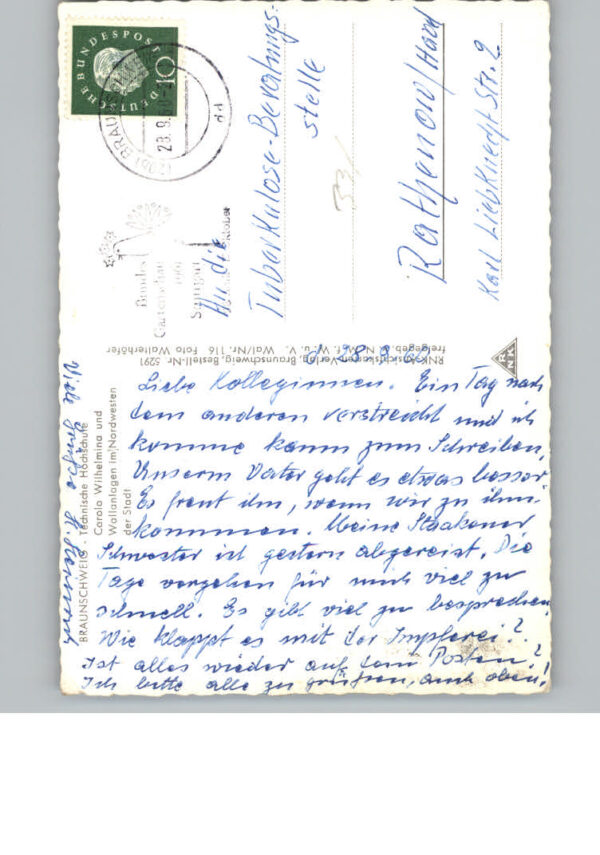 DEUTSCHE BUNDESPOST
10
(20b) BRAUNSCHWEIG
28.9.60
dd
Bundes
Gartenschau
1961
Stuttgart
Oktober
An die
Tuberkulose-Beratungs-
stelle
33/
Rathenow/Havel
Karl Liebknecht Str. 2
RNK Ansichtskarten-Verlag, Braunschweig, Bestell-Nr. 5291
freigegeb. N. M. f. W. u. V., Wal/Nr. 116 Foto Walterhöfer
RNK
28.9.60
BRAUNSCHWEIG · Technische Hochschule
Carola Wilhelmina und
Wallanlagen im Nordwesten
der Stadt
Liebe Kolleginnen. Ein Tag nach
dem anderen verstreicht und ich
komme kaum zum Schreiben,
Unserm Vater geht es etwas besser.
Es freut ihn, wenn wir zu ihm
kommen. Meine Staakener
Schwester ist gestern abgereist. Die
Tage vergehen für mich viel zu
schnell. Es gibt viel zu besprechen.
Wie klappt es mit der Impferei?
Ist alles wieder auf dem Posten?
Ich bitte alle zu grüßen, auch oben!
Viele Grüße